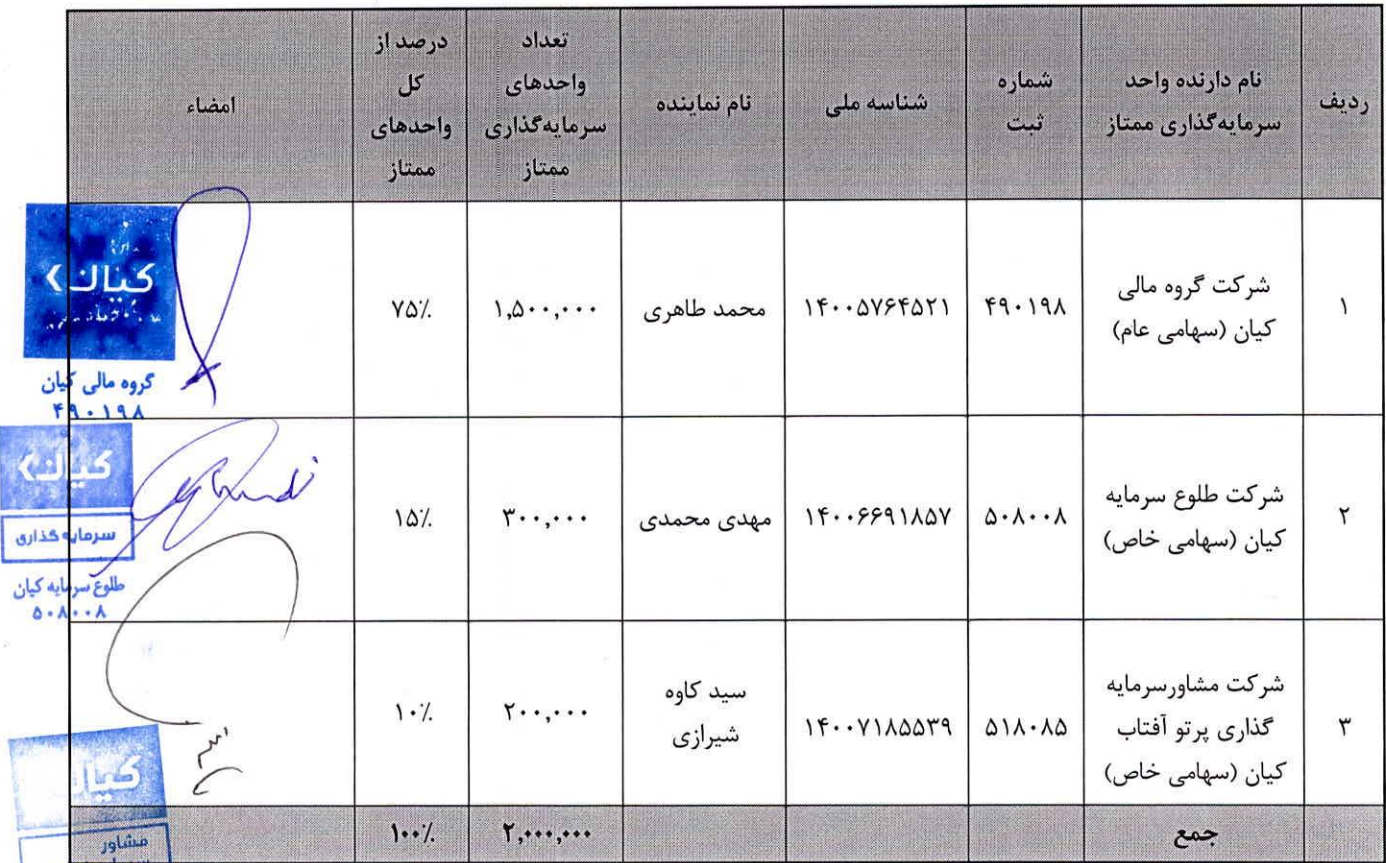 ردیف
نام دارنده واحد
سرمایه‌گذاری ممتاز
شماره
ثبت
شناسه ملی
نام نماینده
تعداد
واحدهای
سرمایه‌گذاری
ممتاز
درصد از
کل
واحدهای
ممتاز
امضاء
۱
شرکت گروه مالی
کیان (سهامی عام)
۴۹۰۱۹۸
۱۴۰۰۵۷۶۴۵۲۱
محمد طاهری
۱,۵۰۰,۰۰۰
۷۵٪
کیان
گروه مالی کیان
۴۹۰۱۹۸
۲
شرکت طلوع سرمایه
کیان (سهامی خاص)
۵۰۸۰۰۸
۱۴۰۰۶۶۹۱۸۵۷
مهدی محمدی
۳۰۰,۰۰۰
۱۵٪
کیان
سرمایه گذاری
طلوع سرمایه کیان
۵۰۸۰۰۸
۳
شرکت مشاورسرمایه
گذاری پرتو آفتاب
کیان (سهامی خاص)
۵۱۸۰۸۵
۱۴۰۰۷۱۸۵۵۳۹
سید کاوه
شیرازی
۲۰۰,۰۰۰
۱۰٪
کیان
مشاور
جمع
۲,۰۰۰,۰۰۰
۱۰۰٪